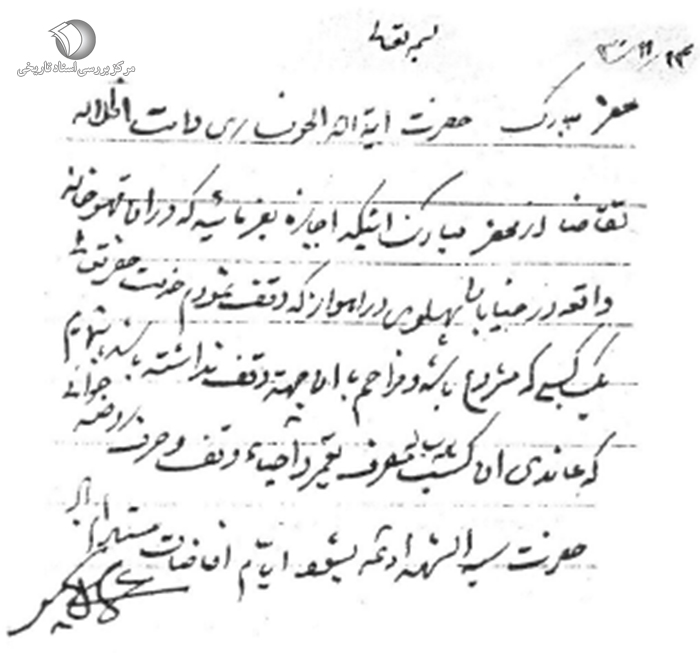 مرکز بررسی اسناد تاریخی
بسمه تعالی
محضر مبارک حضرت آیة الله الخونساری دامت ظلاله
تقاضا از محضر مبارک اینکه اجازه بفرمائید که در آن قهوه خانه
واقعه در خیابان پهلوی در اهواز که وقف نمودم خدمت حضرتعالی
یک کسبی که مشروع باشد و مزاحم با آن جهة وقف نداشته باشد بنهیم
که عائدی آن کسب بصرف تعمیر و احیاء وقف و صرف روضه خوانی
حضرت سید الشهداء شود ایام افاضات مستدام